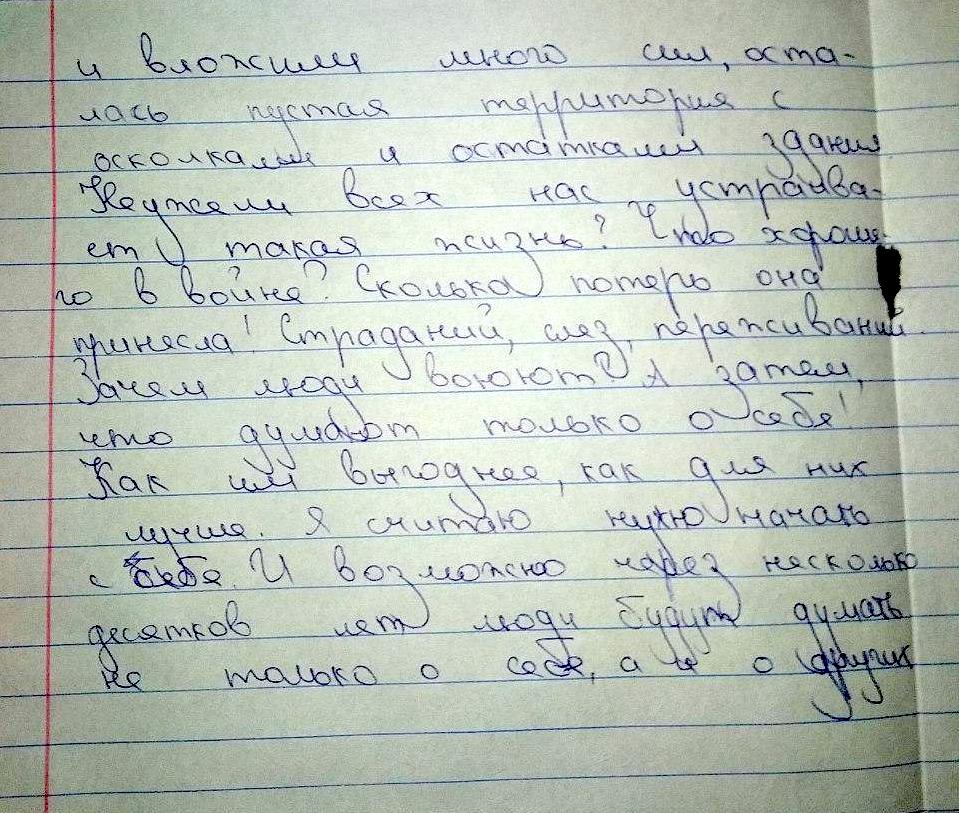 и вложили много сил, оста-
лась пустая территория с
осколками и остатками здания
Неужели всех нас устраива-
ет такая жизнь? Что хороше-
го в войне? Сколько потерь она
принесла! Страданий, слез, переживаний.
Зачем люди воюют? А затем,
что думают только о себе!
Как им выгоднее, как для них
лучше. Я считаю нужно начать
с себя. И возможно через несколько
десятков лет люди будут думать
не только о себе, а и о других